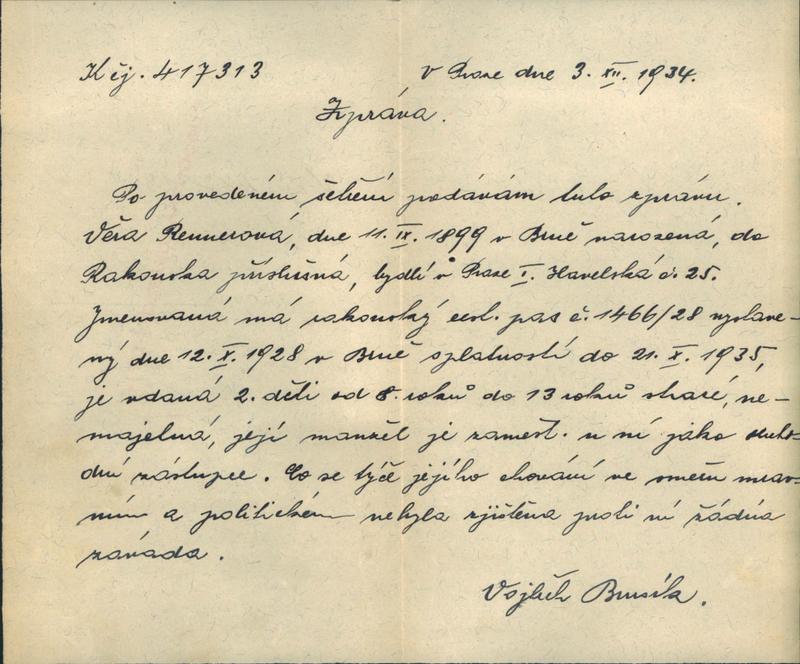 K čj. 417313
V Praze dne 3. XII. 1934.
Zpráva.
Po provedeném šetření podávám tuto zprávu.
Věra Rennerová, dne 11. IX. 1899 v Brně narozená, do
Rakouska příslušná, bydlí v Praze I. Havelská č. 25.
Jmenovaná má rakouský cest. pas č. 1466/28 vystave-
ný dne 12. X. 1928 v Brně splatností do 21. X. 1935,
je vdaná 2. děti od 8. roků do 13 roků staré, ne-
majetná, její manžel je zaměst. u ní jako obcho-
dní zástupce. Co se týče jejího chování ve směru mrav-
ním a politickém nebyla zjištěna proti ní žádná
závada.
Vojtěch Brusík.